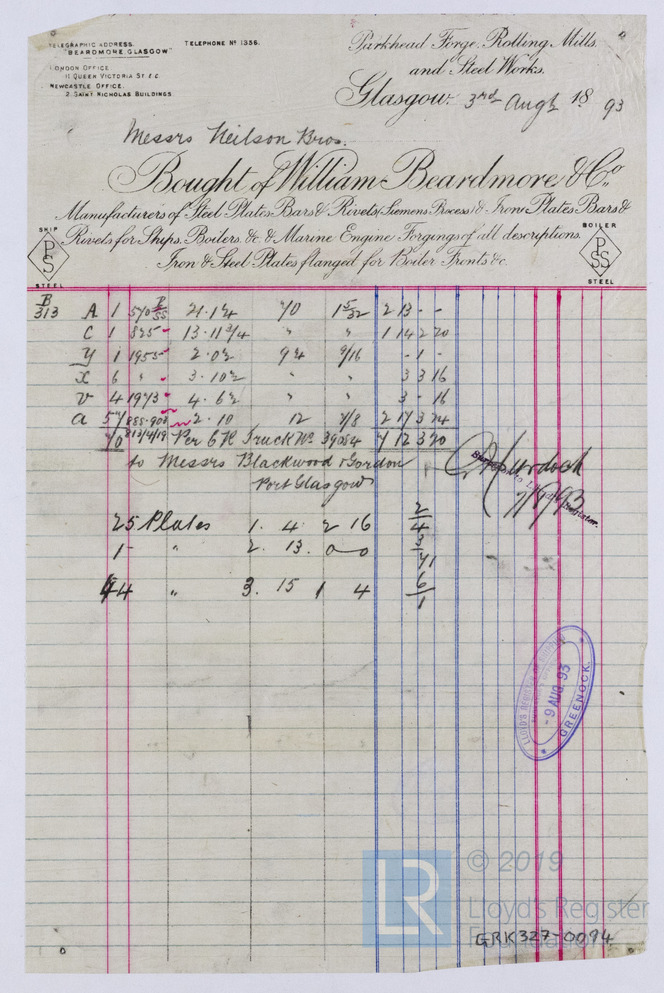 TELEGRAPHIC ADDRESS. TELEPHONE Nº 1356.
"BEARDMORE GLASGOW"
LONDON OFFICE.
11 QUEEN VICTORIA ST E.C.
NEWCASTLE OFFICE.
2 SAINT NICHOLAS BUILDINGS
Parkhead Forge, Rolling Mills.
and Steel Works.
Glasgow. 3rd Augt 18 93
Messrs Neilson Bros.
Bought of William Beardmore & Co.
Manufacturers of Steel Plates Bars & Rivets (Siemens Process) & Iron Plates Bars &
Rivets for Ships, Boilers, &c. & Marine Engine Forgings of all descriptions.
Iron & Steel Plates flanged for Boiler Fronts &c.
SHIP PS STEEL
BOILER PSS STEEL
B
313 A 1 21.1½ 70 1 5/32 2 13 - -
C 1 825 13.11 3/4 " " 1 14 2 20
y 1 1955 2.0½ 94 9/16 - 1 -
X 6 " 3.10½ " " 3 3 16
v 4 1973 4.6½ " " 3 - 16
a 2.10 12 7/8 2 17 3 24
70 Per C R Truck No. 39084 7 12 3 20
to Messrs Blackwood & Gordon
Port Glasgow
25 Plates 1. 4 2 16
1 - " 2. 13. 0 0
44 " 3. 15 1 4
2/4
3/41
6/1
Murdoch
7/8/93
LLOYD'S REGISTER OF SHIPPING
- 9 AUG. 93
GREENOCK.
LR
© 2019
Lloyd's Register
Foundation
GRK327-0094